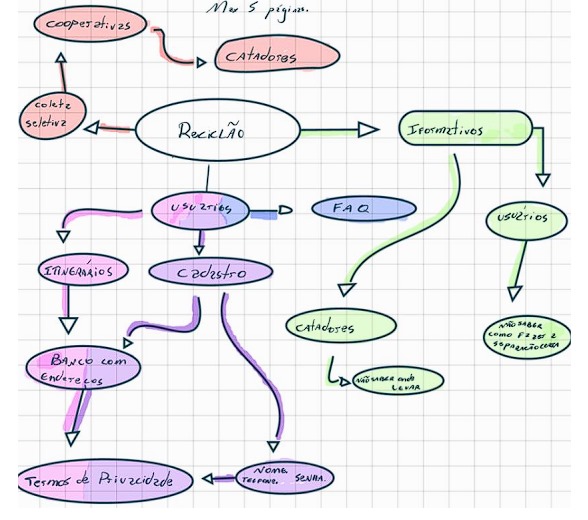 Max 5 páginas.
Cooperativas
Catadores
Coleta
seletiva
Reciclão
Iformativos
Usuários
FAQ
Usuários
Itinerários
Cadastro
Catadores
Não saber
como fazer a
separação certa
Banco com
Endereços
Não saber onde
levar
Termos de Privacidade
Nome.
Telefone. Senha.